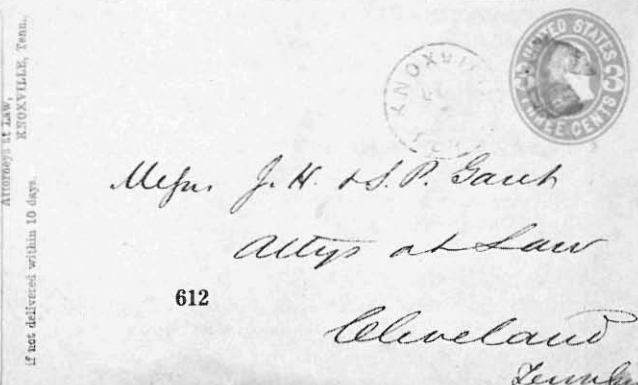 Attorneys at Law,
KNOXVILLE, Tenn.
if not delivered within 10 days.
KNOXVIL
UNITED STATES
THREE CENTS
3 3
Messrs. J. H. & S. P. Gaut
Attys at Law
612
Cleveland